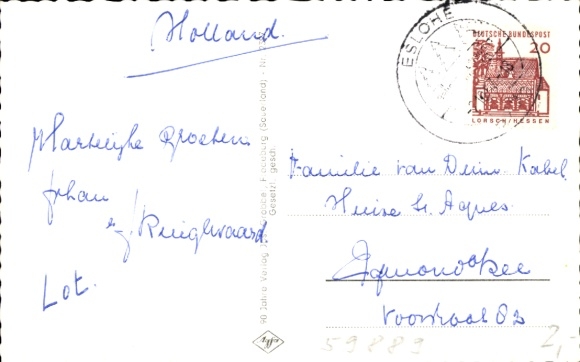 Holland.
Hartelijke Groeten
Johan
Lot.
ESLOHE
DEUTSCHE BUNDESPOST
20
LORSCH/HESSEN
Familie van Deinse Kabel
Huize St. Agnes
Egmond a/Zee
Voorstraat 82
90 Jahre Verlag
Fredeburg (Sauerland) - Nr.
Gesetzl. gesch.
59889
2,-